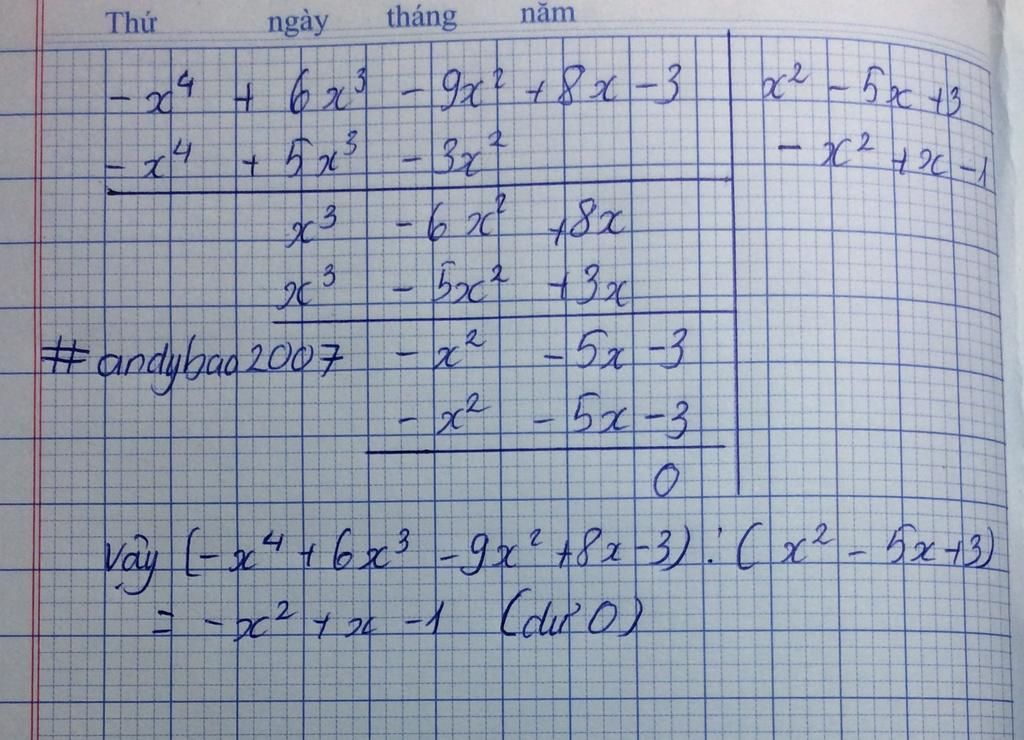 Thứ ngày tháng năm
-x⁴ + 6x³ - 9x² + 8x - 3 x² - 5x + 3
-x⁴ + 5x³ - 3x² - x² + x - 1
x³ - 6x² + 8x
x³ - 5x² + 3x
#andybao2007 - x² - 5x - 3
- x² - 5x - 3
0
Vậy (-x⁴ + 6x³ - 9x² + 8x - 3) : (x² - 5x + 3)
= -x² + x - 1 (dư 0)